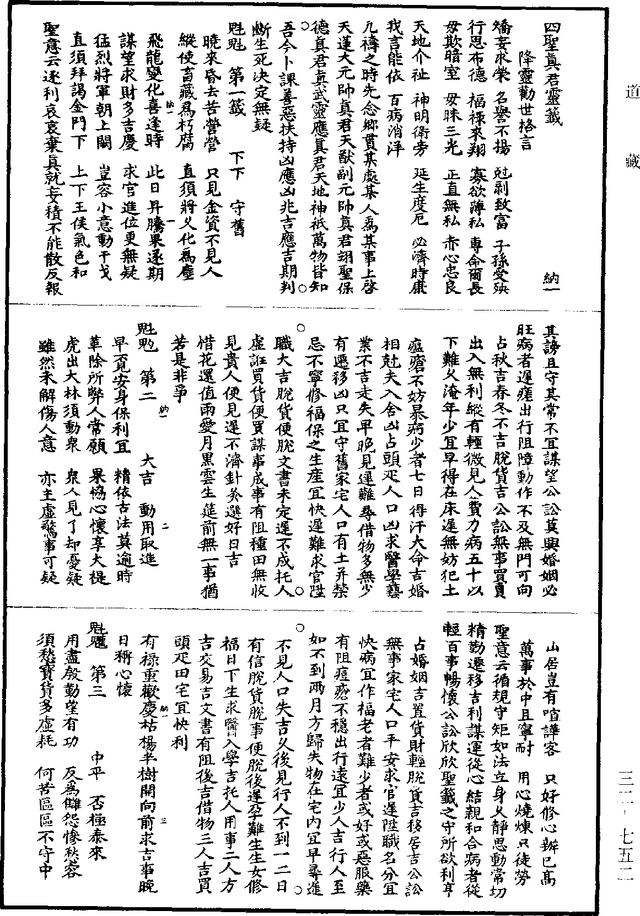 道藏
四聖真君靈籤
納一
降靈勸世格言
矯妄求榮 名譽不揚 剋剝致富 子孫受殃
行思布德 福祿來翔 寡欲薄私 壽命爾長
毋欺暗室 毋昧三光 正直無私 赤心忠良
天地介祉 神明衛旁 延生度厄 必濟時康
我言能依 百病消洋
凡禱之時先念鄉貫某處某人為某事上啓
天蓬大元帥真君天猷副元帥真君翊聖保
德真君真武靈應真君天地神祇萬物皆知
吾今卜課善惡扶持凶應凶兆吉應吉期判
斷生死決定無疑
魁魁 第一籤 下下 守舊
曉來昏去苦營營 只見金資不見人
縱使蓄藏爲朽腐 直須將義化為塵
飛龍變化喜逢時 此日昇騰果遂期
謀望求財多吉慶 求官進位更無疑
猛烈將軍朝上闕 豈容小意動干戈
直須拜謁金門下 上下王侯氣色和
聖意云逐利哀哀棄真就妄積不能散反報
其謗且守其常不宜謀望公訟莫興婚姻必
旺病者遲瘥出行阻障動作不及無門可向
占秋吉春冬不吉脫貨吉公訟無事買賣
出入無利縱有輕微見人費力病五十以
下難乂淹年少宜早得在床遲無妨犯土
瘟瘡不妨暴病少者七日得汗大命吉婚
相尅夫入舍凶占頭疋人口凶求醫學藝
業不吉走失早晚見運難尋借物多無少
有遷移凶只宜守舊家宅人口有土并禁
忌不寧修福保之生產宜快遲難求官陞
職大吉脫貨便脫文書未定遲不成托人
虛誑買貨便買謀事成事有阻種田無收
見貴人便見遲不濟針灸選好日吉
惜花還值雨愛月黑雲生莚前無一事猶
若是非爭
魁魀 第二 大吉 動用取進
早覓安身保利宜 精依古法莫逾時
草除所弊人常願 果協心懷享大禔
虎出大林須動衆 衆人見了却憂疑
雖然未解傷人意 亦主虛驚事可疑
山居豈有喧譁客 只好修心辨已高
萬事於中且寧耐 用心燒煉只徒勞
聖意云循規守矩如法立身乂靜思動常切
精勤遷移吉利謀運從心結親和合病者從
輕百事暢懷公訟欣欣聖籤之守所欲利亨
占婚姻吉置貨財輕脫貨吉移居吉公訟
無事家宅人口平安求官遲陞職名分宜
快病宜作福老者難少者或好或惡服藥
有阻瘟瘡不穩出行遠宜少人吉行人至
如不到兩月方歸失物在宅內宜早尋進
不見人口失吉久後見行人不到一二日
有信脫貨脫事便脫後遲孕難生生女修
福日下生求醫入學吉托人用事二人方
吉交易吉文書有阻後吉借物三人吉買
頭疋田宅宜快利
有祿重歡慶枯楊半樹開向前求吉事晚
日稱心懷
魁魓 第三 中平 否極泰來
用盡殷勤望有功 反爲讎怨慘愁容
須愁寶貨多虛耗 何苦區區不守中
三二-七五二